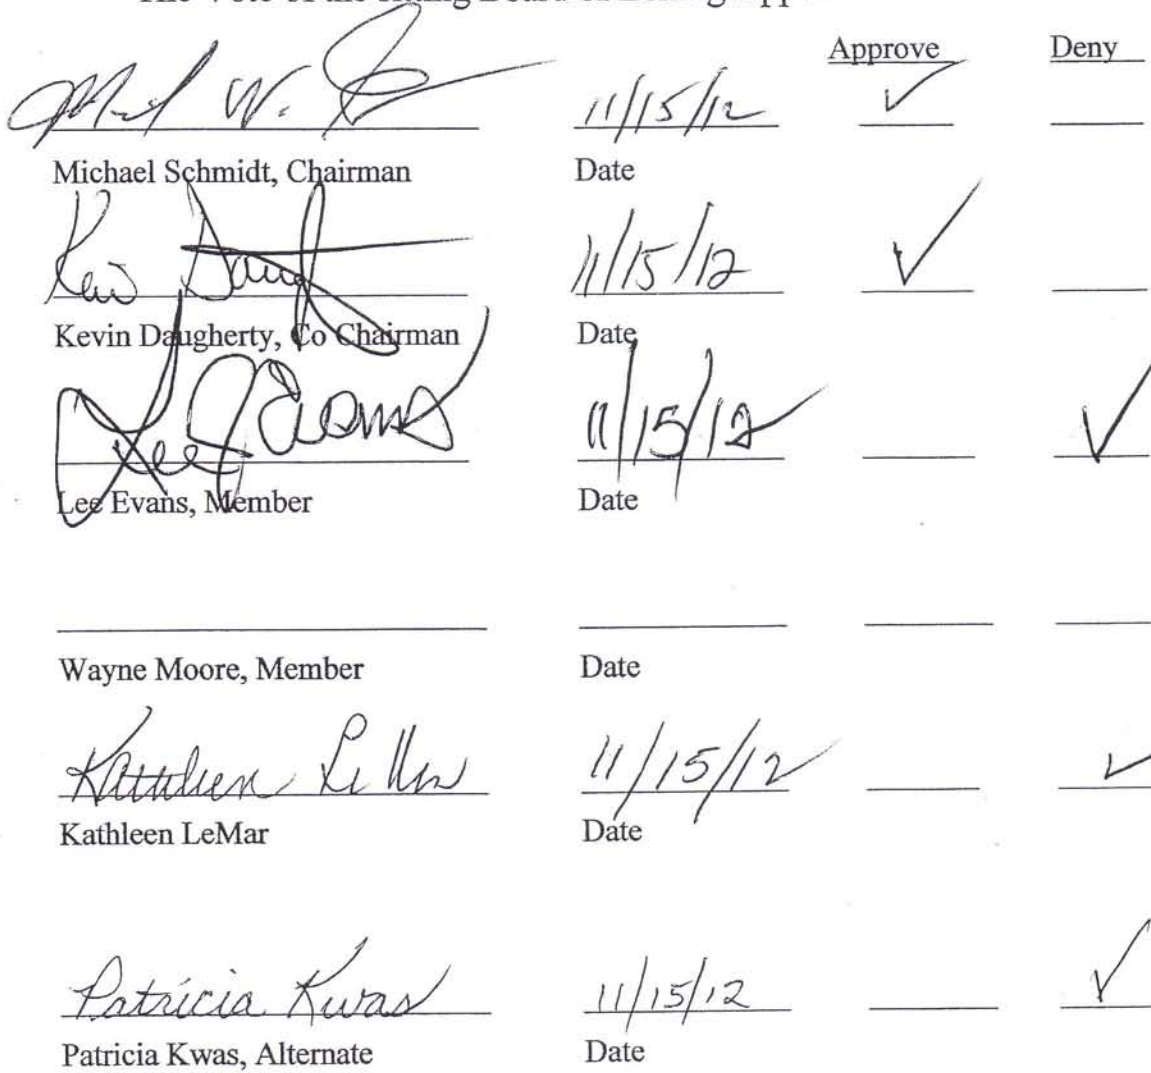 Approve Deny
11/15/12 ✓
Michael Schmidt, Chairman Date
11/15/12 ✓
Kevin Daugherty, Co Chairman Date
Lee Evans 11/15/12 ✓
Lee Evans, Member Date
Wayne Moore, Member Date
Kathleen 11/15/12 ✓
Kathleen LeMar Date
Patricia Kwas 11/15/12 ✓
Patricia Kwas, Alternate Date